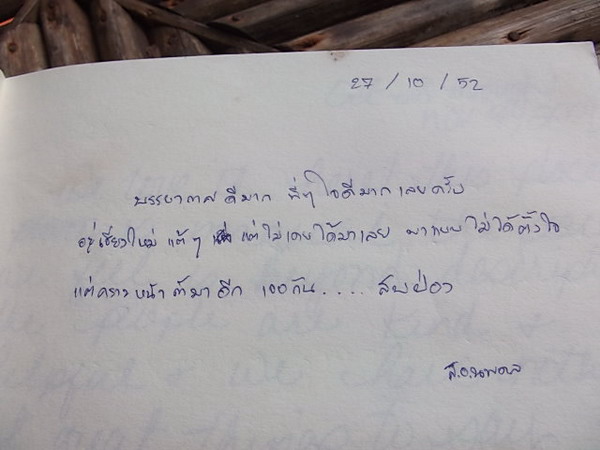 27 / 10 / 52
บรรยากาศดีมาก พี่ๆ ใจดีมากเลยครับ
อยู่เชียงใหม่แท้ๆ แต่ไม่เคยได้มาเลย มาแบบไม่ได้ตั้งใจ
แต่คราวหน้าต้องมาอีก เจอกัน....